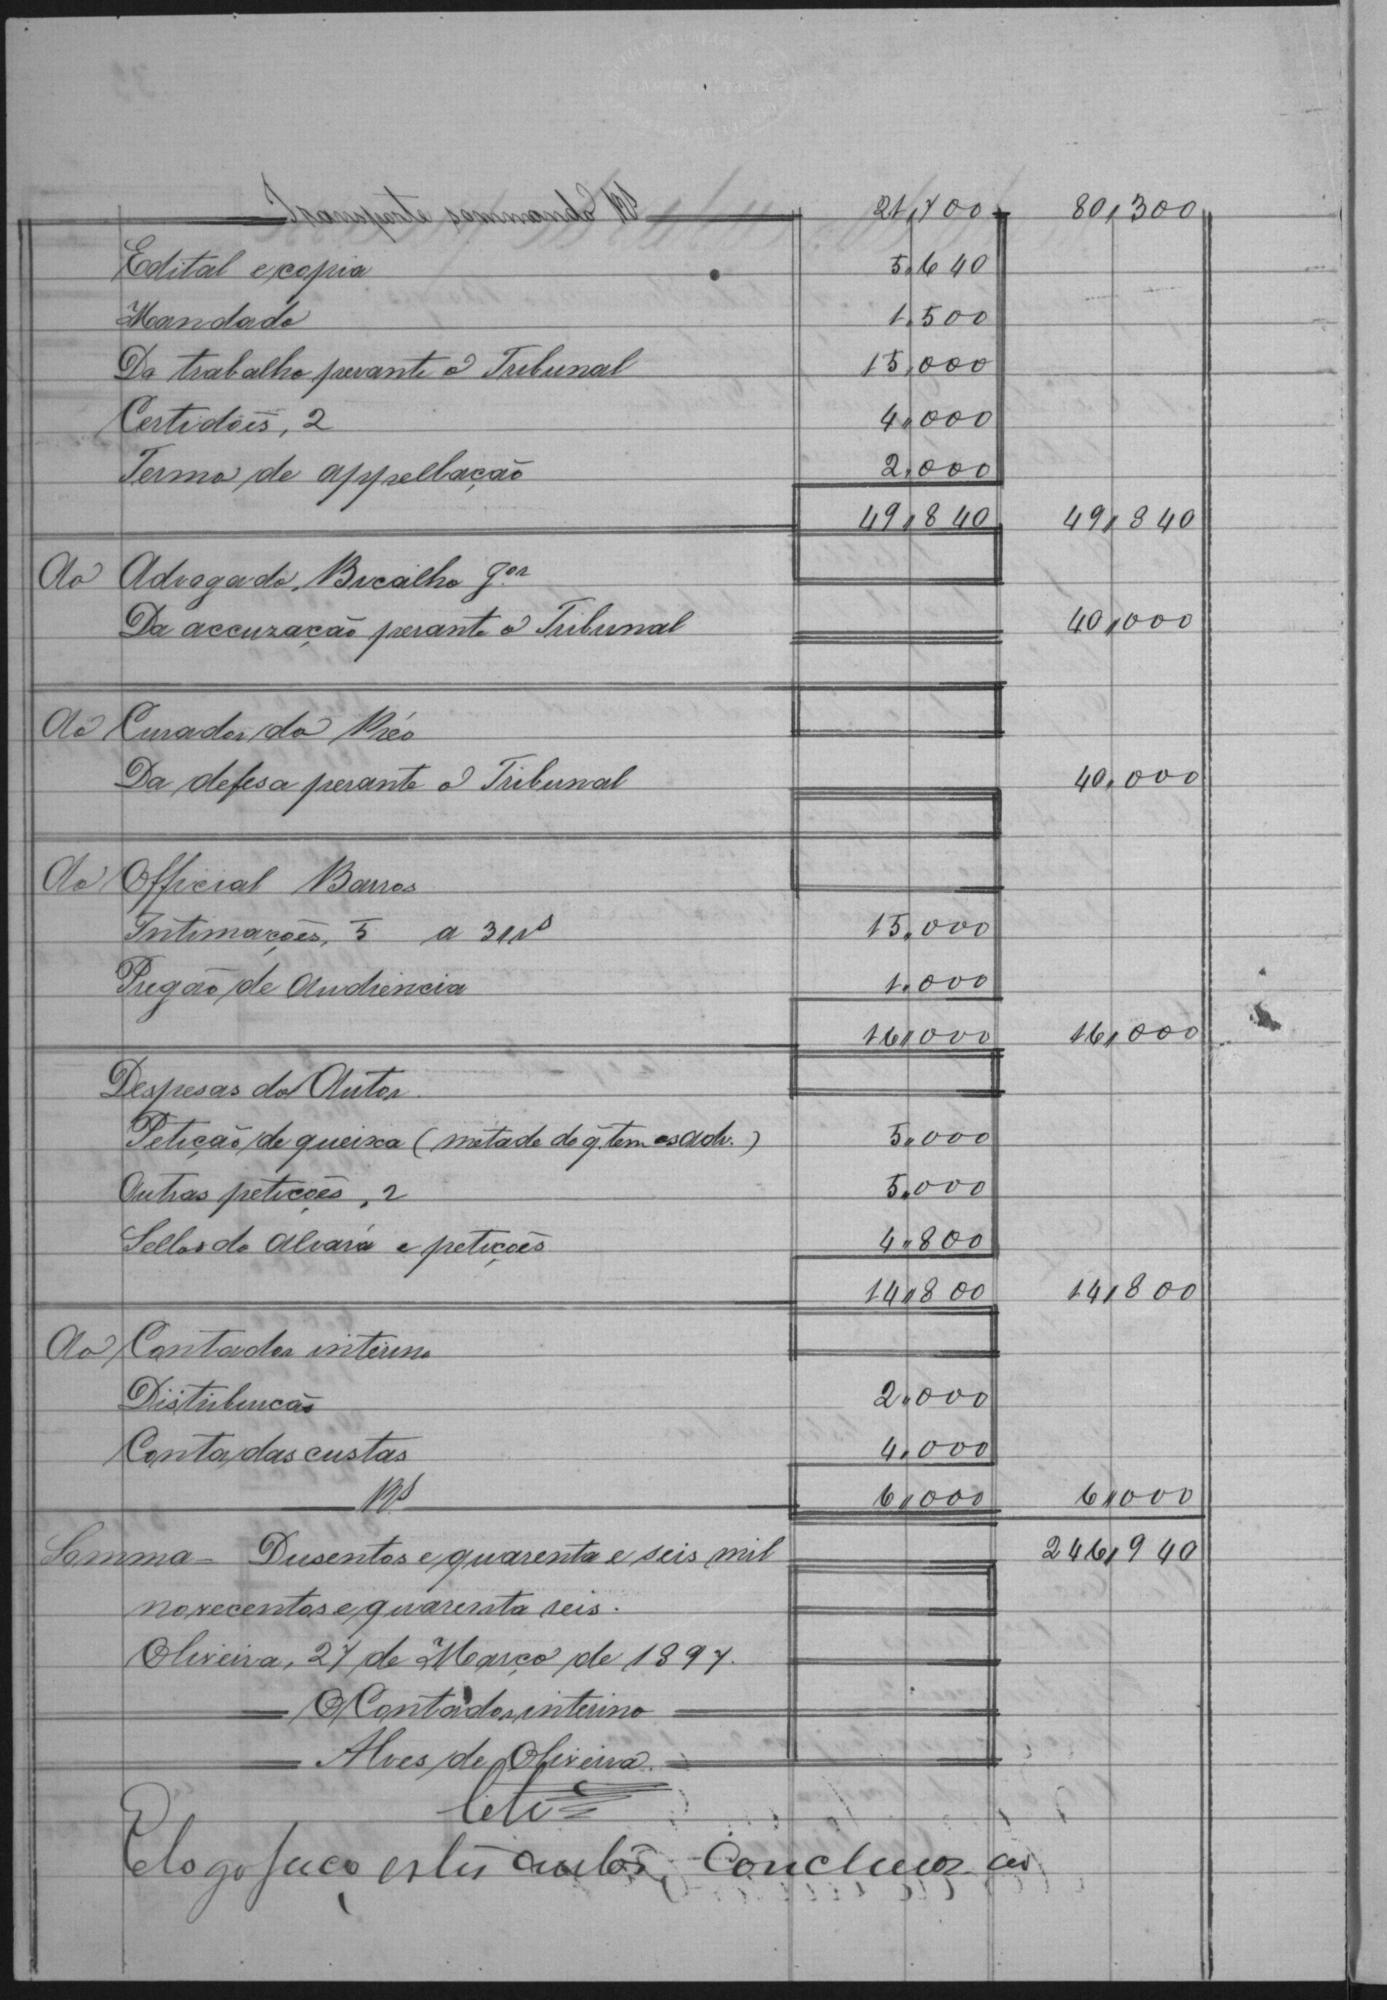 Transporte sommando Rs 21,700 80,300
Edital e copia 5,640
Mandado 1,500
Do trabalho perante o Tribunal 15,000
Certidões, 2 4,000
Termo de appellação 2,000
49,840 49,840
Ao Advogado, Bicalho Jor
Da accuzação perante o Tribunal 40,000
Ao Curador do Réo
Da defesa perante o Tribunal 40,000
Ao Official Barros
Intimações, 5 a 3,,rs 15,000
Pregão de Audiencia 1,000
16,000 16,000
Despesas do Autor.
Petição de queixa (metade do q. tem os adv.) 5,000
Outras petições, 2 5,000
Sellos do Alvará e petições 4,800
14,800 14,800
Ao Contador interino
Distribuicão 2,000
Conta das custas 4,000
Rs 6,000 6,000
Somma - Dusentos e quarenta e seis mil 246,940
novecentos e quarenta reis.
Oliveira, 27 de Março de 1897.
O Contador interino
Alves de Oliveira.
E logo faço estes autos Concluzos ao